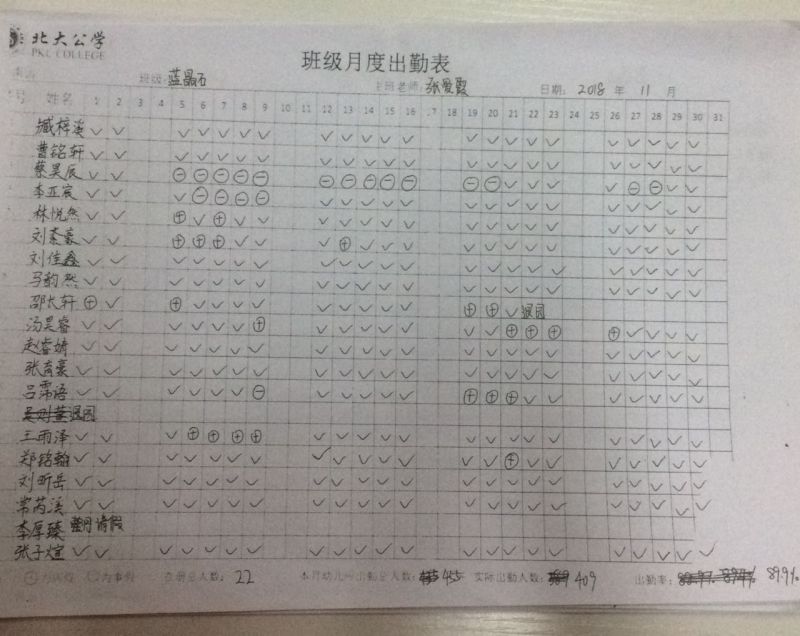 北大公学
PKU COLLEGE
班级月度出勤表
班级: 蓝晶石 主班老师: 张爱霞 日期: 2018 年 11 月
号 姓名 1 2 3 4 5 6 7 8 9 10 11 12 13 14 15 16 17 18 19 20 21 22 23 24 25 26 27 28 29 30 31
臧梓
曹铭轩
蔡昊辰
李亚宸
林悦然
刘
刘佳鑫
马韵然
邵长轩 退园
汤昊睿
赵睿婧
张育豪
吕霈语
退园
王雨泽
郑铭翰
刘昕岳
常芮溪
李厚臻 整月请假
张子煊
在册总人数: 22 本月幼儿应出勤总人数: 455 实际出勤人数: 409 出勤率: 89.9%